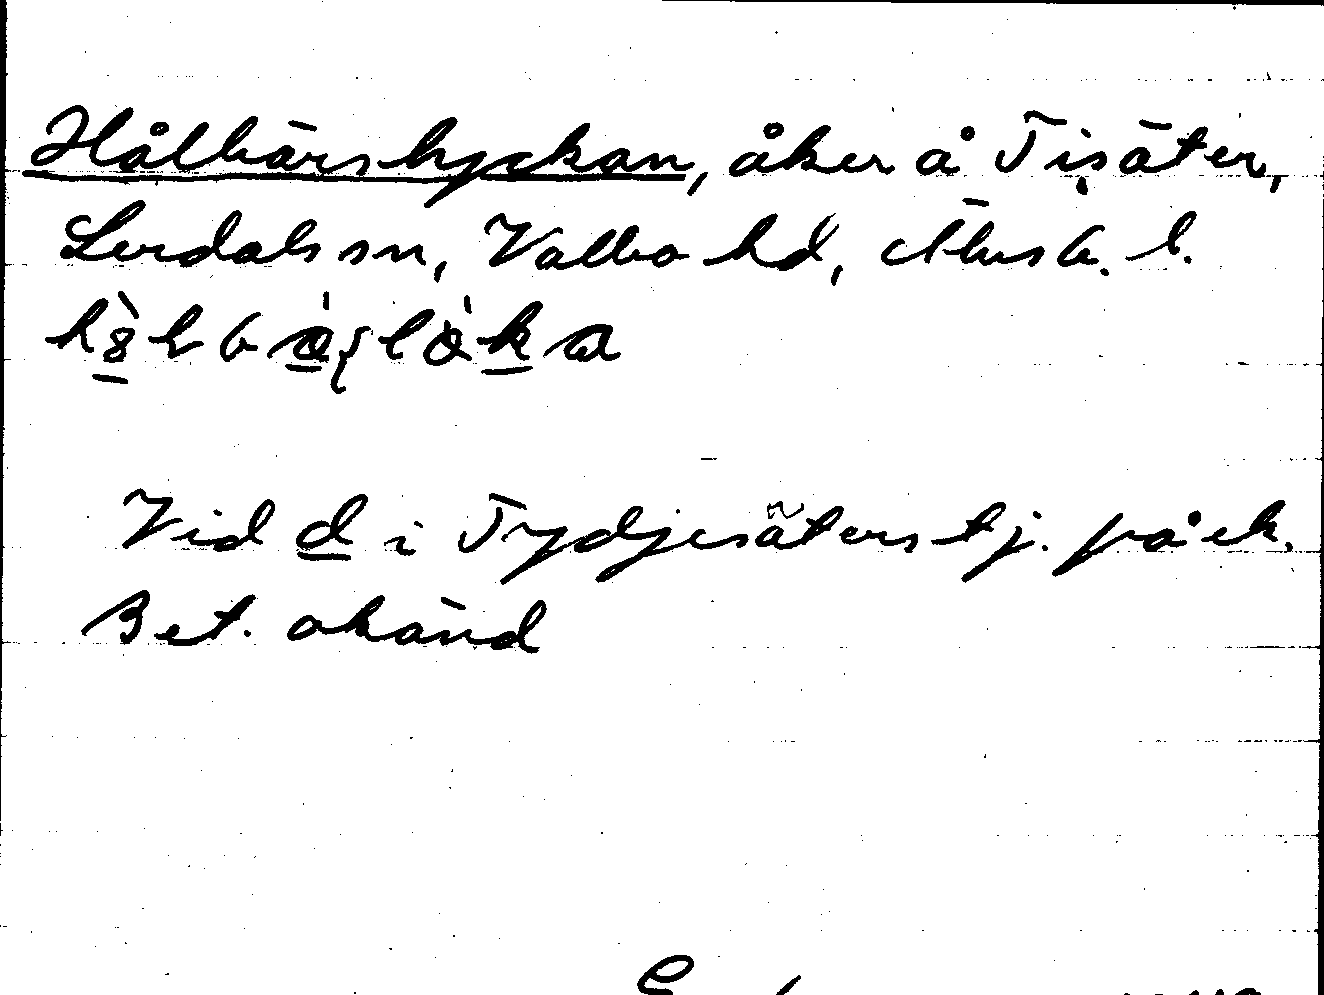 Hålbärslyckan, åker å Tisäter,
Lerdals sn, Valbo hd, Älvsb. l.
Vid d i Tydjesäterstj. på ek.
Bet. okänd